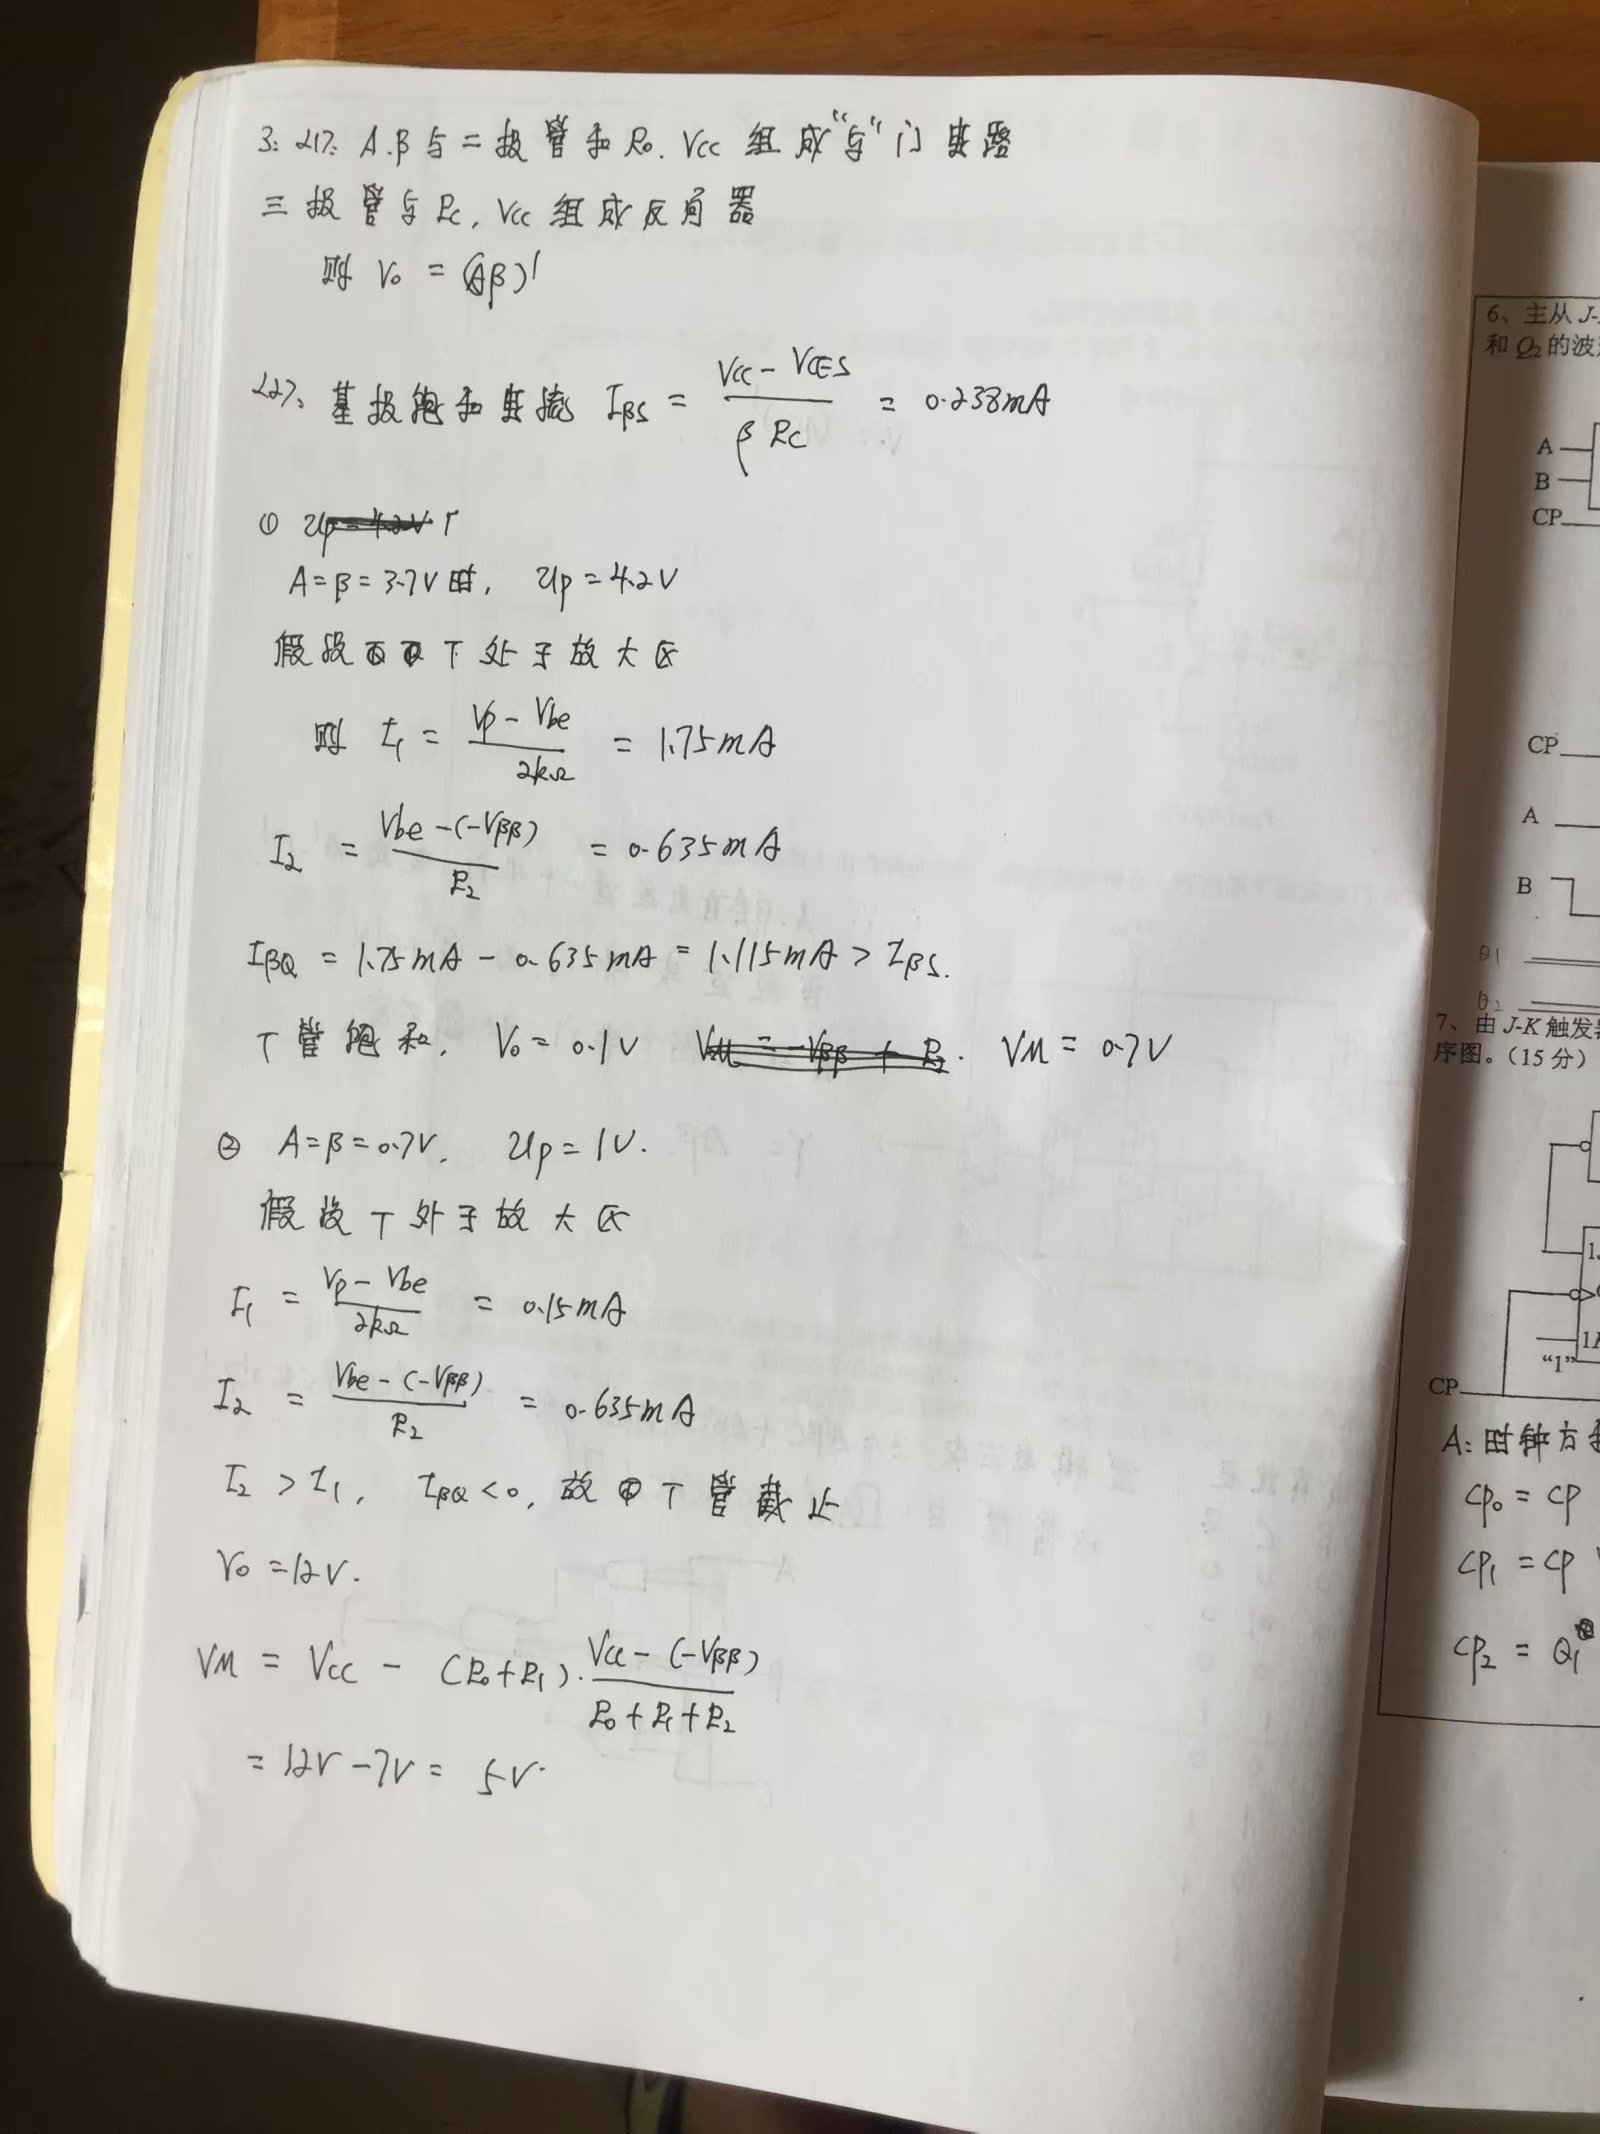 3: <1>: A.B与二极管和R₀. Vcc 组成“与”门电路
三极管与Rc, Vcc 组成反向器
则 V₀ = (AB)'
<2>、基极饱和电流 IBS = (Vcc - VCES) / (β Rc) = 0.238mA
①
A=B=3.7V时, Up=4.2V
假设 T处于放大区
则 I₁ = (Vp - Vbe) / 2kΩ = 1.75mA
I₂ = (Vbe-(-VBB)) / R₂ = 0.635mA
IBQ = 1.75mA - 0.635mA = 1.115mA > IBS.
T管饱和. V₀ = 0.1V VM = 0.7V
② A=B=0.7V. Up=1V.
假设T处于放大区
I₁ = (Vp - Vbe) / 2kΩ = 0.15mA
I₂ = (Vbe - (-VBB)) / R₂ = 0.635mA
I₂ > I₁, IBQ<0, 故 T管截止
V₀ = 12V.
VM = Vcc - (R₀+R₁)·(Vcc - (-VBB)) / (R₀+R₁+R₂)
= 12V - 7V = 5V.
6、主从 J-
和 Q₂ 的波
A
B
CP
CP
A
B
θ1
θ2
7、由 J-K 触发器
序图。（15 分）
1J
1K
“1”
CP
A: 时钟方
CP₀ = CP
CP₁ = CP
CP₂ = Q₁